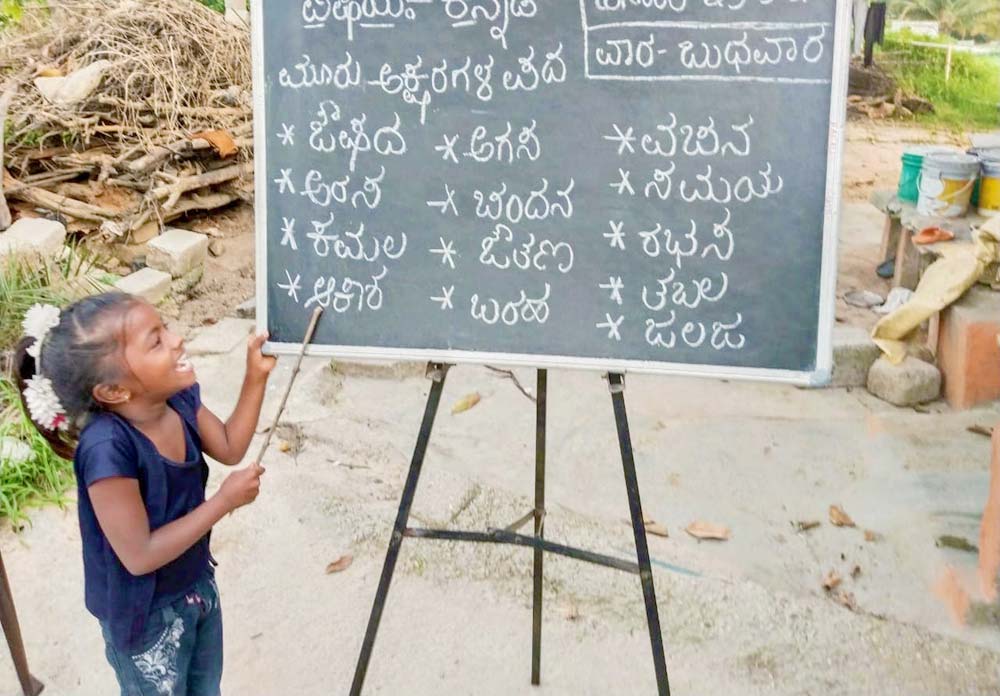 ವಿಷಯ:- ಕನ್ನಡ
ವಾರ- ಬುಧವಾರ
ಮೂರು ಅಕ್ಷರಗಳ ಪದ
* ಔಷಧ * ಅಗಸ * ವಚನ
* ಅರಸ * ಚಂದನ * ಸಮಯ
* ಕಮಲ * ಔತಣ * ರಭಸ
* ಆಕಾಶ * ಬರಹ * ತಬಲ
* ಜಲಜ